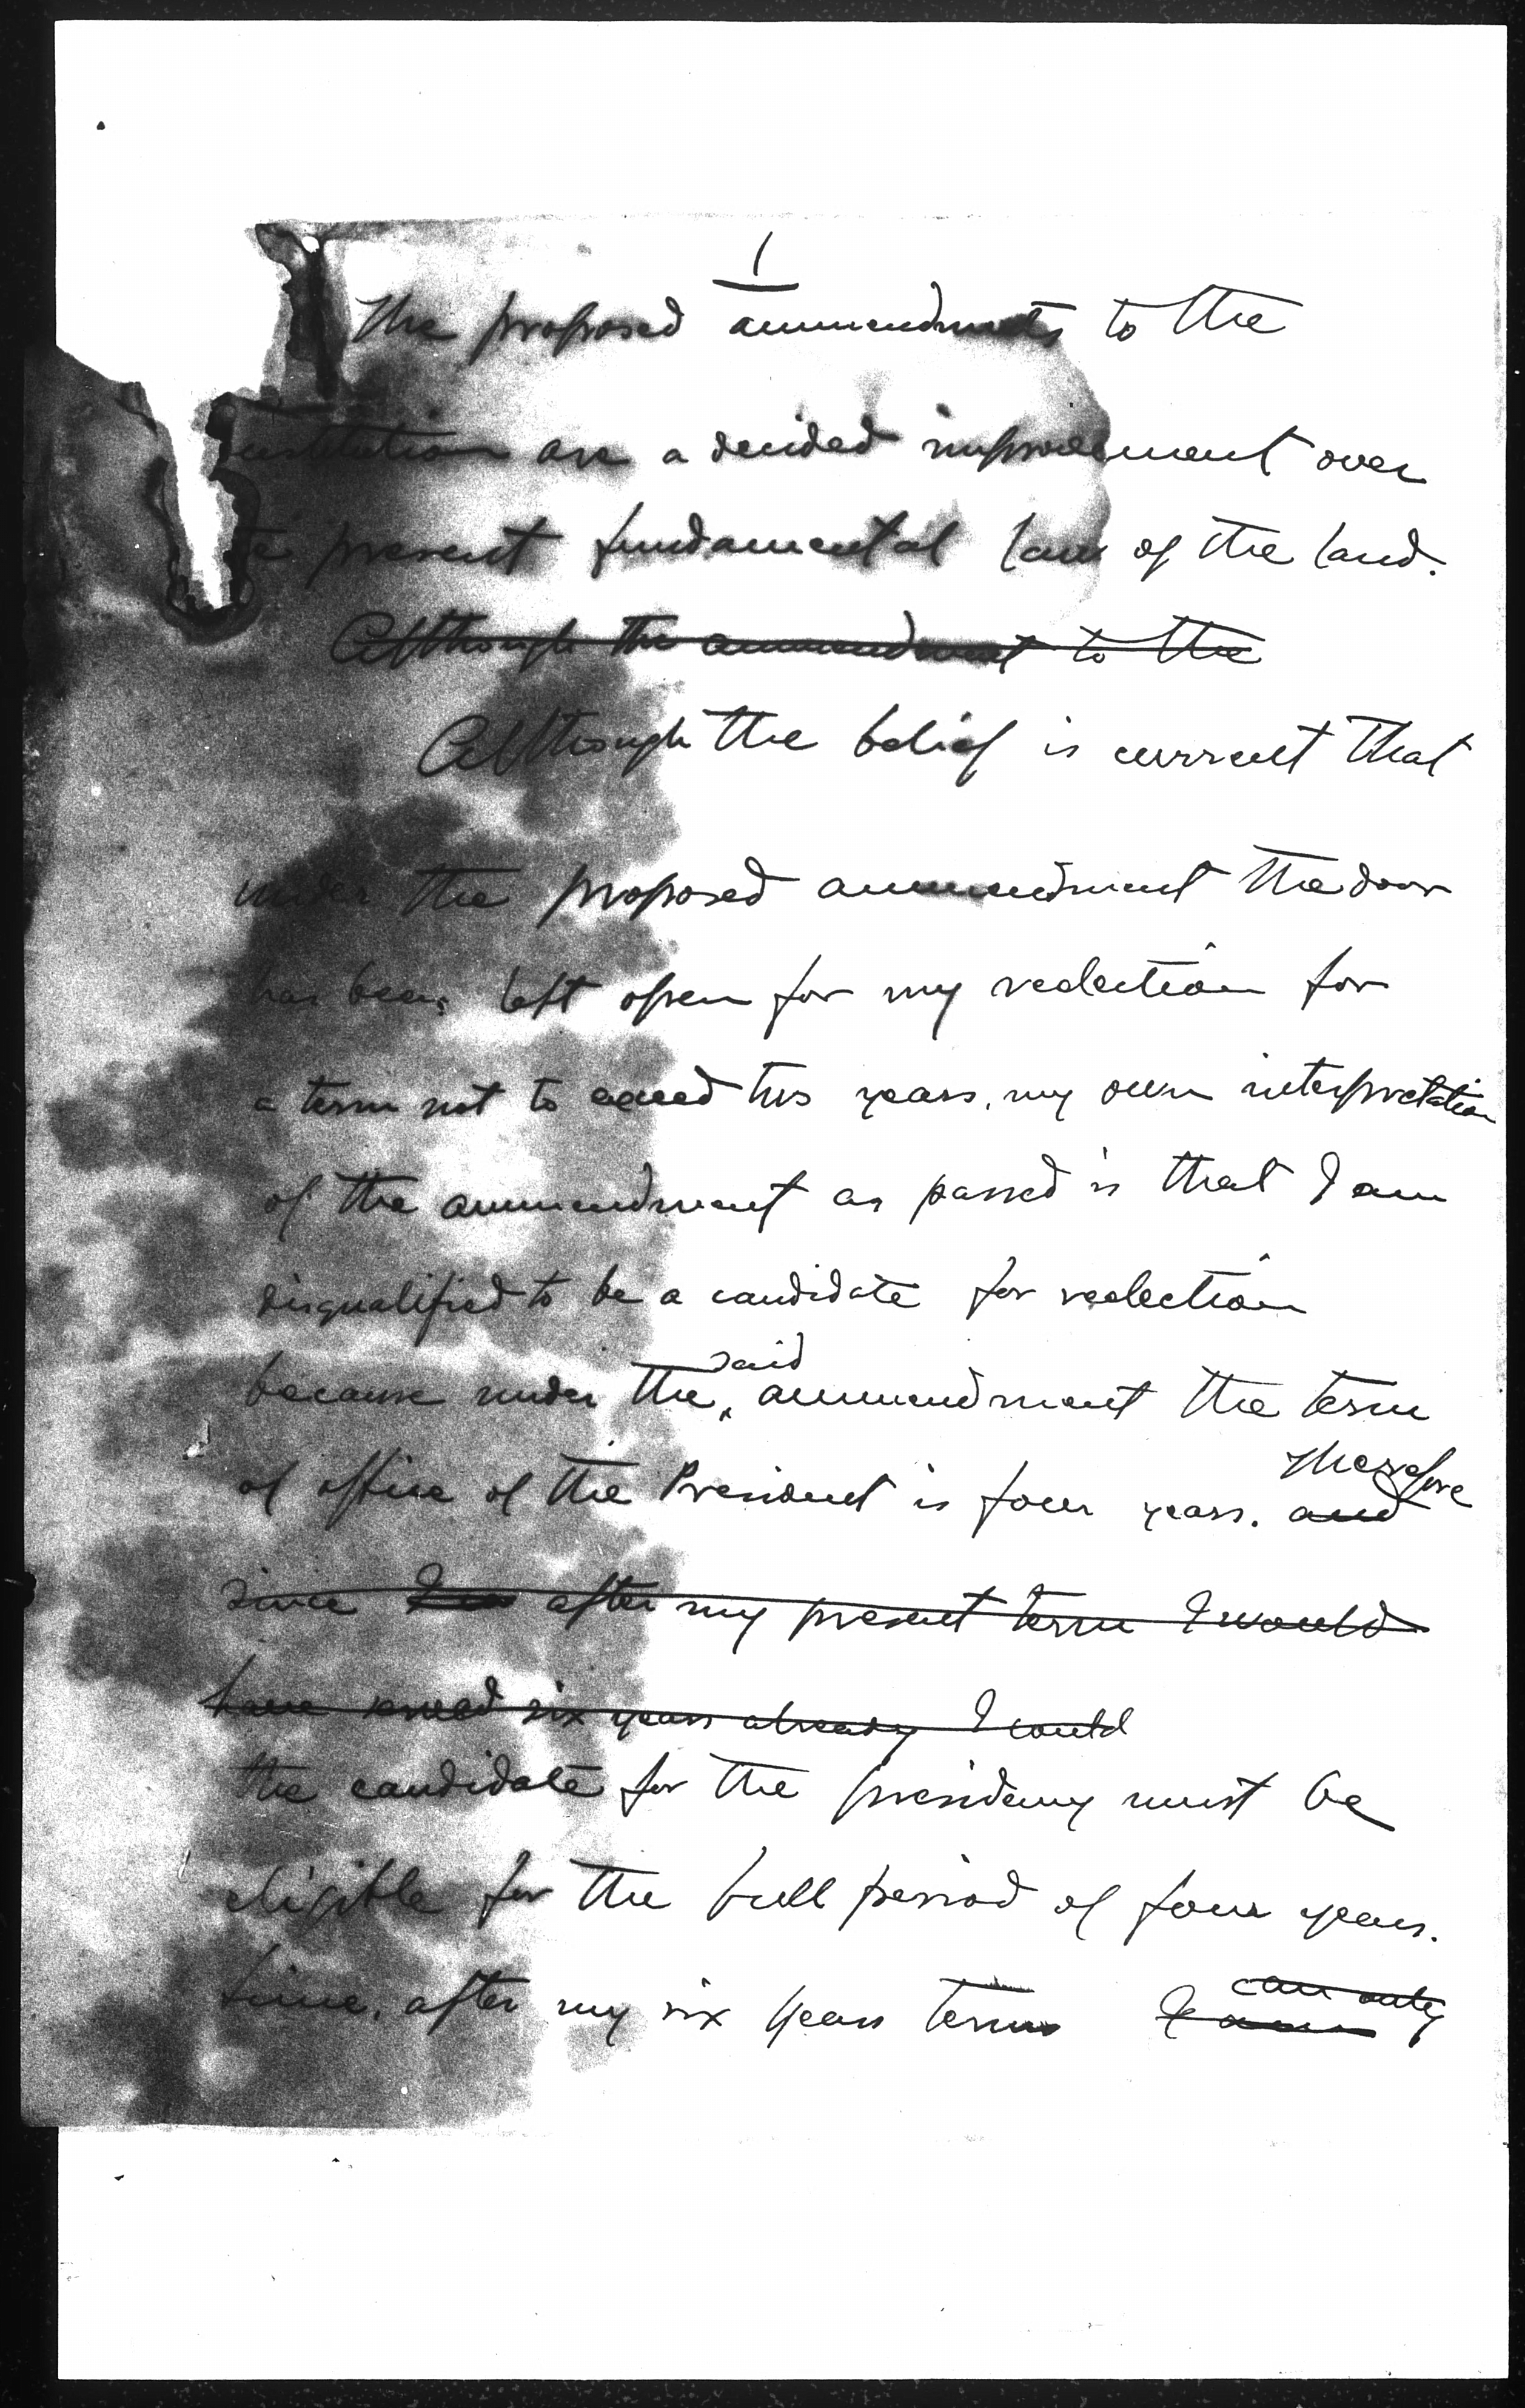 1
The proposed ammendments to the
nstitution are a decided improvement over
te present fundamental law of the land.
Although the ammendment to the
Although the belief is current that
under the proposed ammendment the door
has been left open for my reelection for
a term not to exceed two years, my own interpretation
of the ammendment as passed is that I am
disqualified to be a candidate for reelection
said
because under the ammendment the term
therefore
of office of the President is four years. and
since after my present term I would
have served six years already I could
the candidate for the presidency must be
eligible for the full period of four years.
can only
Since, after my six years term I am